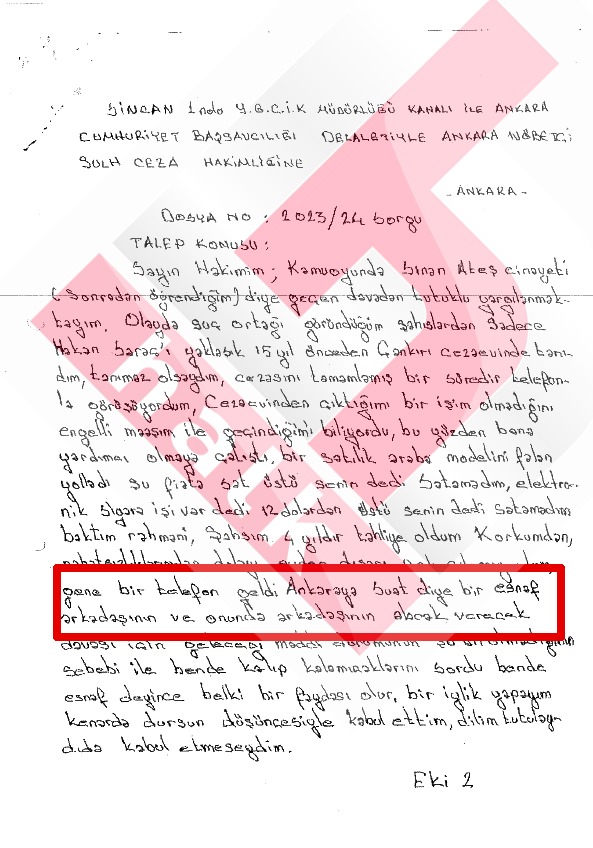 SİNCAN 1 nolu Y.G.C.İ.K MÜDÜRLÜĞÜ KANALI İLE ANKARA
CUMHURİYET BAŞSAVCILIĞI DELALETİYLE ANKARA NÖBETÇİ
SULH CEZA HAKİMLİĞİNE
- ANKARA -
DOSYA NO : 2023/24 Sorgu
TALEP KONUSU :
Sayın Hakimim ; Kamuoyunda Sinan Ateş cinayeti
(Sonradan öğrendiğim) diye geçen davadan tutuklu yargılanmak-
tayım, Olayda suç ortağı göründüğüm şahıslardan Sadece
Hakan Saraç'ı yaklaşık 15 yıl önceden Çankırı cezaevinde tanı-
dım, tanımaz olsaydım, cezasını tamamlamış bir süredir telefon-
la görüşüyordum, Cezaevinden çıktığımı bir işim olmadığını
engelli maaşım ile geçindiğimi biliyordu, bu yüzden bana
yardımcı olmaya çalıştı, bir satılık araba modelini falan
yolladı şu fiata sat üstü senin dedi Satamadım, elektro-
nik Sigara işi var dedi 12 dolardan üstü senin dedi satamadım
baktım rahmani, Şahsım 4 yıldır tahliye oldum Korkumdan,
gene bir telefon geldi Ankaraya Suat diye bir esnaf
arkadaşının ve onunda arkadaşının alacak verecek
davası için geleceği maddi durumunun
sebebi ile bende kalıp kalamıacaklarını sordu bende
esnaf deyince belki bir faydası olur, bir iylik yapayım
kenarda dursun düşüncesiyle kabul ettim, dilim tutulay-
dıda kabul etmeseydim.
Eki 2